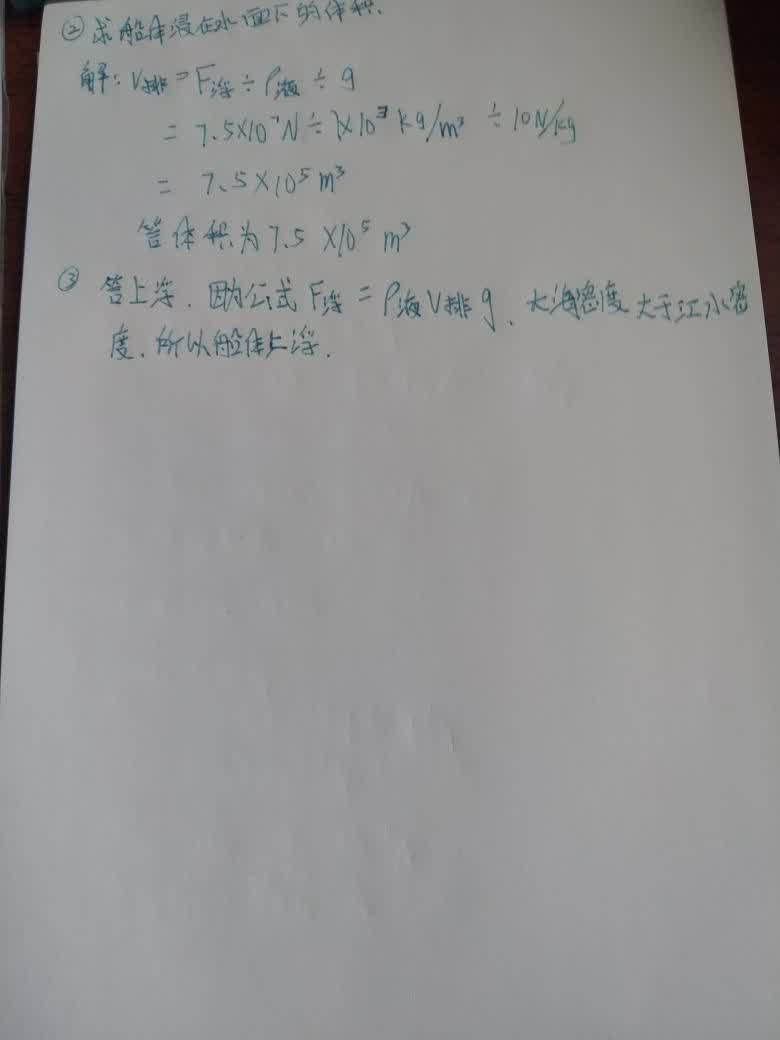 ②求船体浸在水面下的体积.
解: V排 = F浮 ÷ ρ液 ÷ g
= 7.5×10⁷N ÷ 1×10³ kg/m³ ÷ 10N/kg
= 7.5×10⁵ m³
答体积为7.5×10⁵ m³
③ 答上浮. 因为公式 F浮 = ρ液V排g、大海密度大于江水密
度.所以船体上浮.